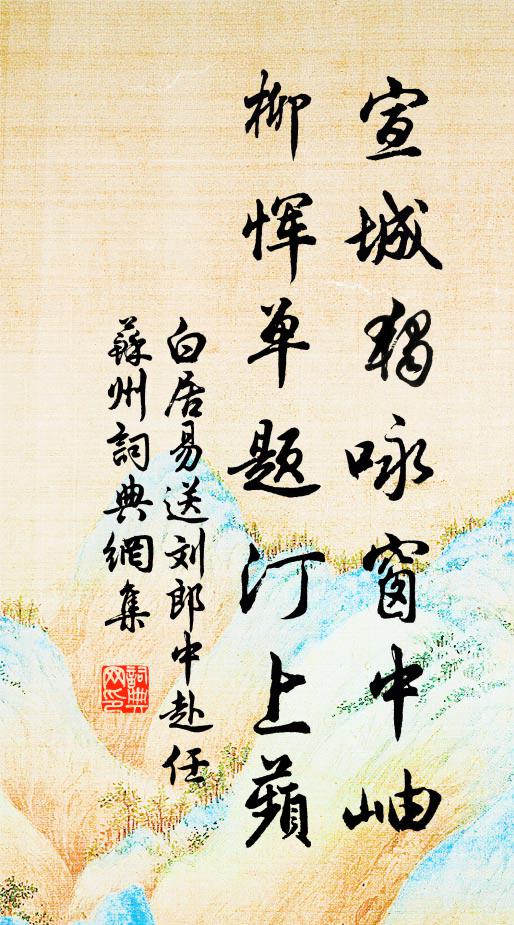 宣城独咏窗中岫
柳恽单题汀上蘋
白居易送刘郎中赴任
蘇州詞典網集
詞典网印